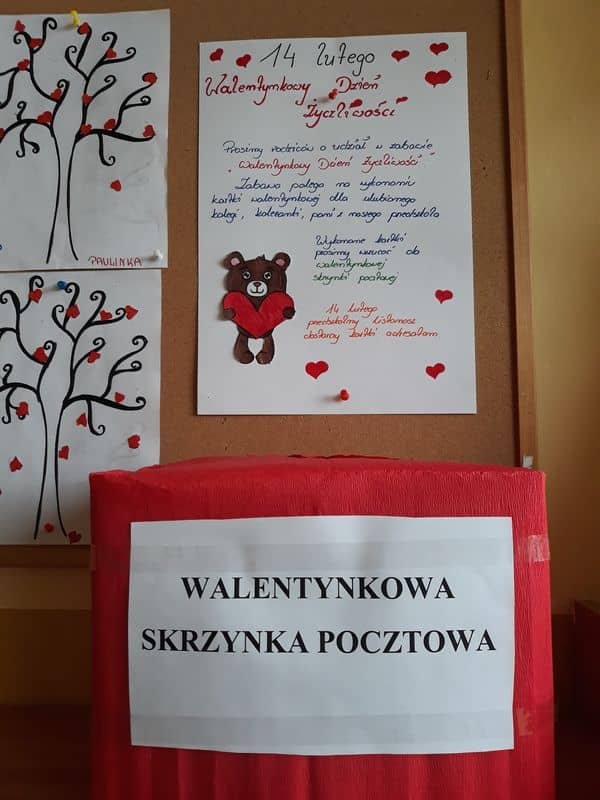 PAULINKA
14 lutego
Walentynkowy Dzień
Życzliwości
Prosimy rodziców o udział w zabawie
"Walentynkowy Dzień Życzliwość"
Zabawa polega na wykonaniu
kartki walentynkowej dla ulubionego
kolegi, koleżanki, pani z naszego przedszkola
Wykonane kartki
prosimy wrzucać do
walentynkowej
skrzynki pocztowej
14 lutego
przedszkolny listonosz
dostarczy kartki adresatom.
WALENTYNKOWA
SKRZYNKA POCZTOWA